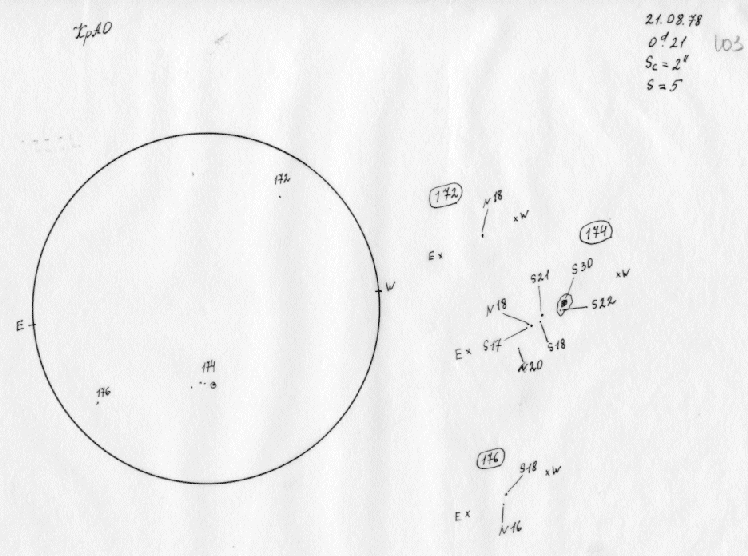 КрАО
21.08.78
0ᵈ.21
Sc = 2"
S = 5
172
W
E
174
176
172
N18
×W
E×
174
S30
S21
×W
S22
N18
S17
S18
E×
N20
176
S18
×W
E×
N16